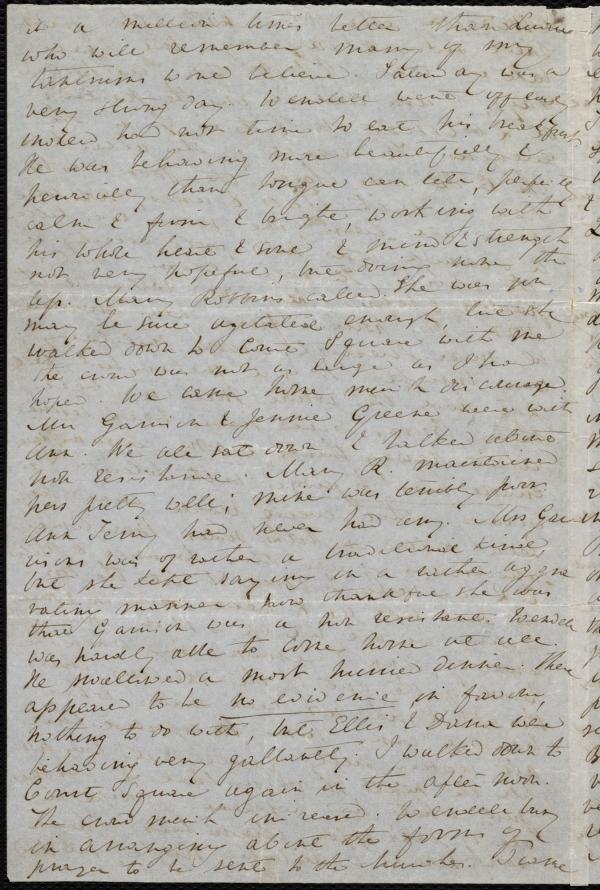 it a million times better than
who will remember many of my
tantrums would believe. Saturday was a
very strong day. Wendell went off early
indeed had not time to eat his breakfast
He was behaving more beautifully &
heroically than tongue can tell, perfectly
calm & firm & bright, working with
his whole heart & soul & mind & strength
not very hopeful, but doing none the
less. Mary Robbins called. She was you
may be sure agitated enough, but she
walked down to Court Square with me
the crowd was not as large as I had
hope. We came home much discouraged.
Mrs Garrison & Jennie Greene were with
Ann. We all sat down & talked about
non resistance. Mary R. maintained
hers pretty well; mine was terribly poor
Ann Terry had never had any. Mrs Gar
risons was of rather a traditional kind,
but she kept saying in a rather aggra
vating manner how thankful she was
that Garrison was a non resistant. Wendell
was hardly able to come home at all.
He swallowed a most hurried dinner. There
appeared to be no evidence in favor,
nothing to do with, but Ellis & Dana were
behaving very gallantly. I walked down to
Court Square again in the afternoon.
The crowd much increased. Wendell busy
in arranging about the forms of
prayer to be sent to the churches. I came